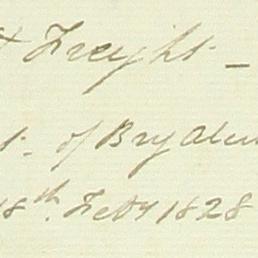 Freight -
of Bryden
18th. Feby 1828